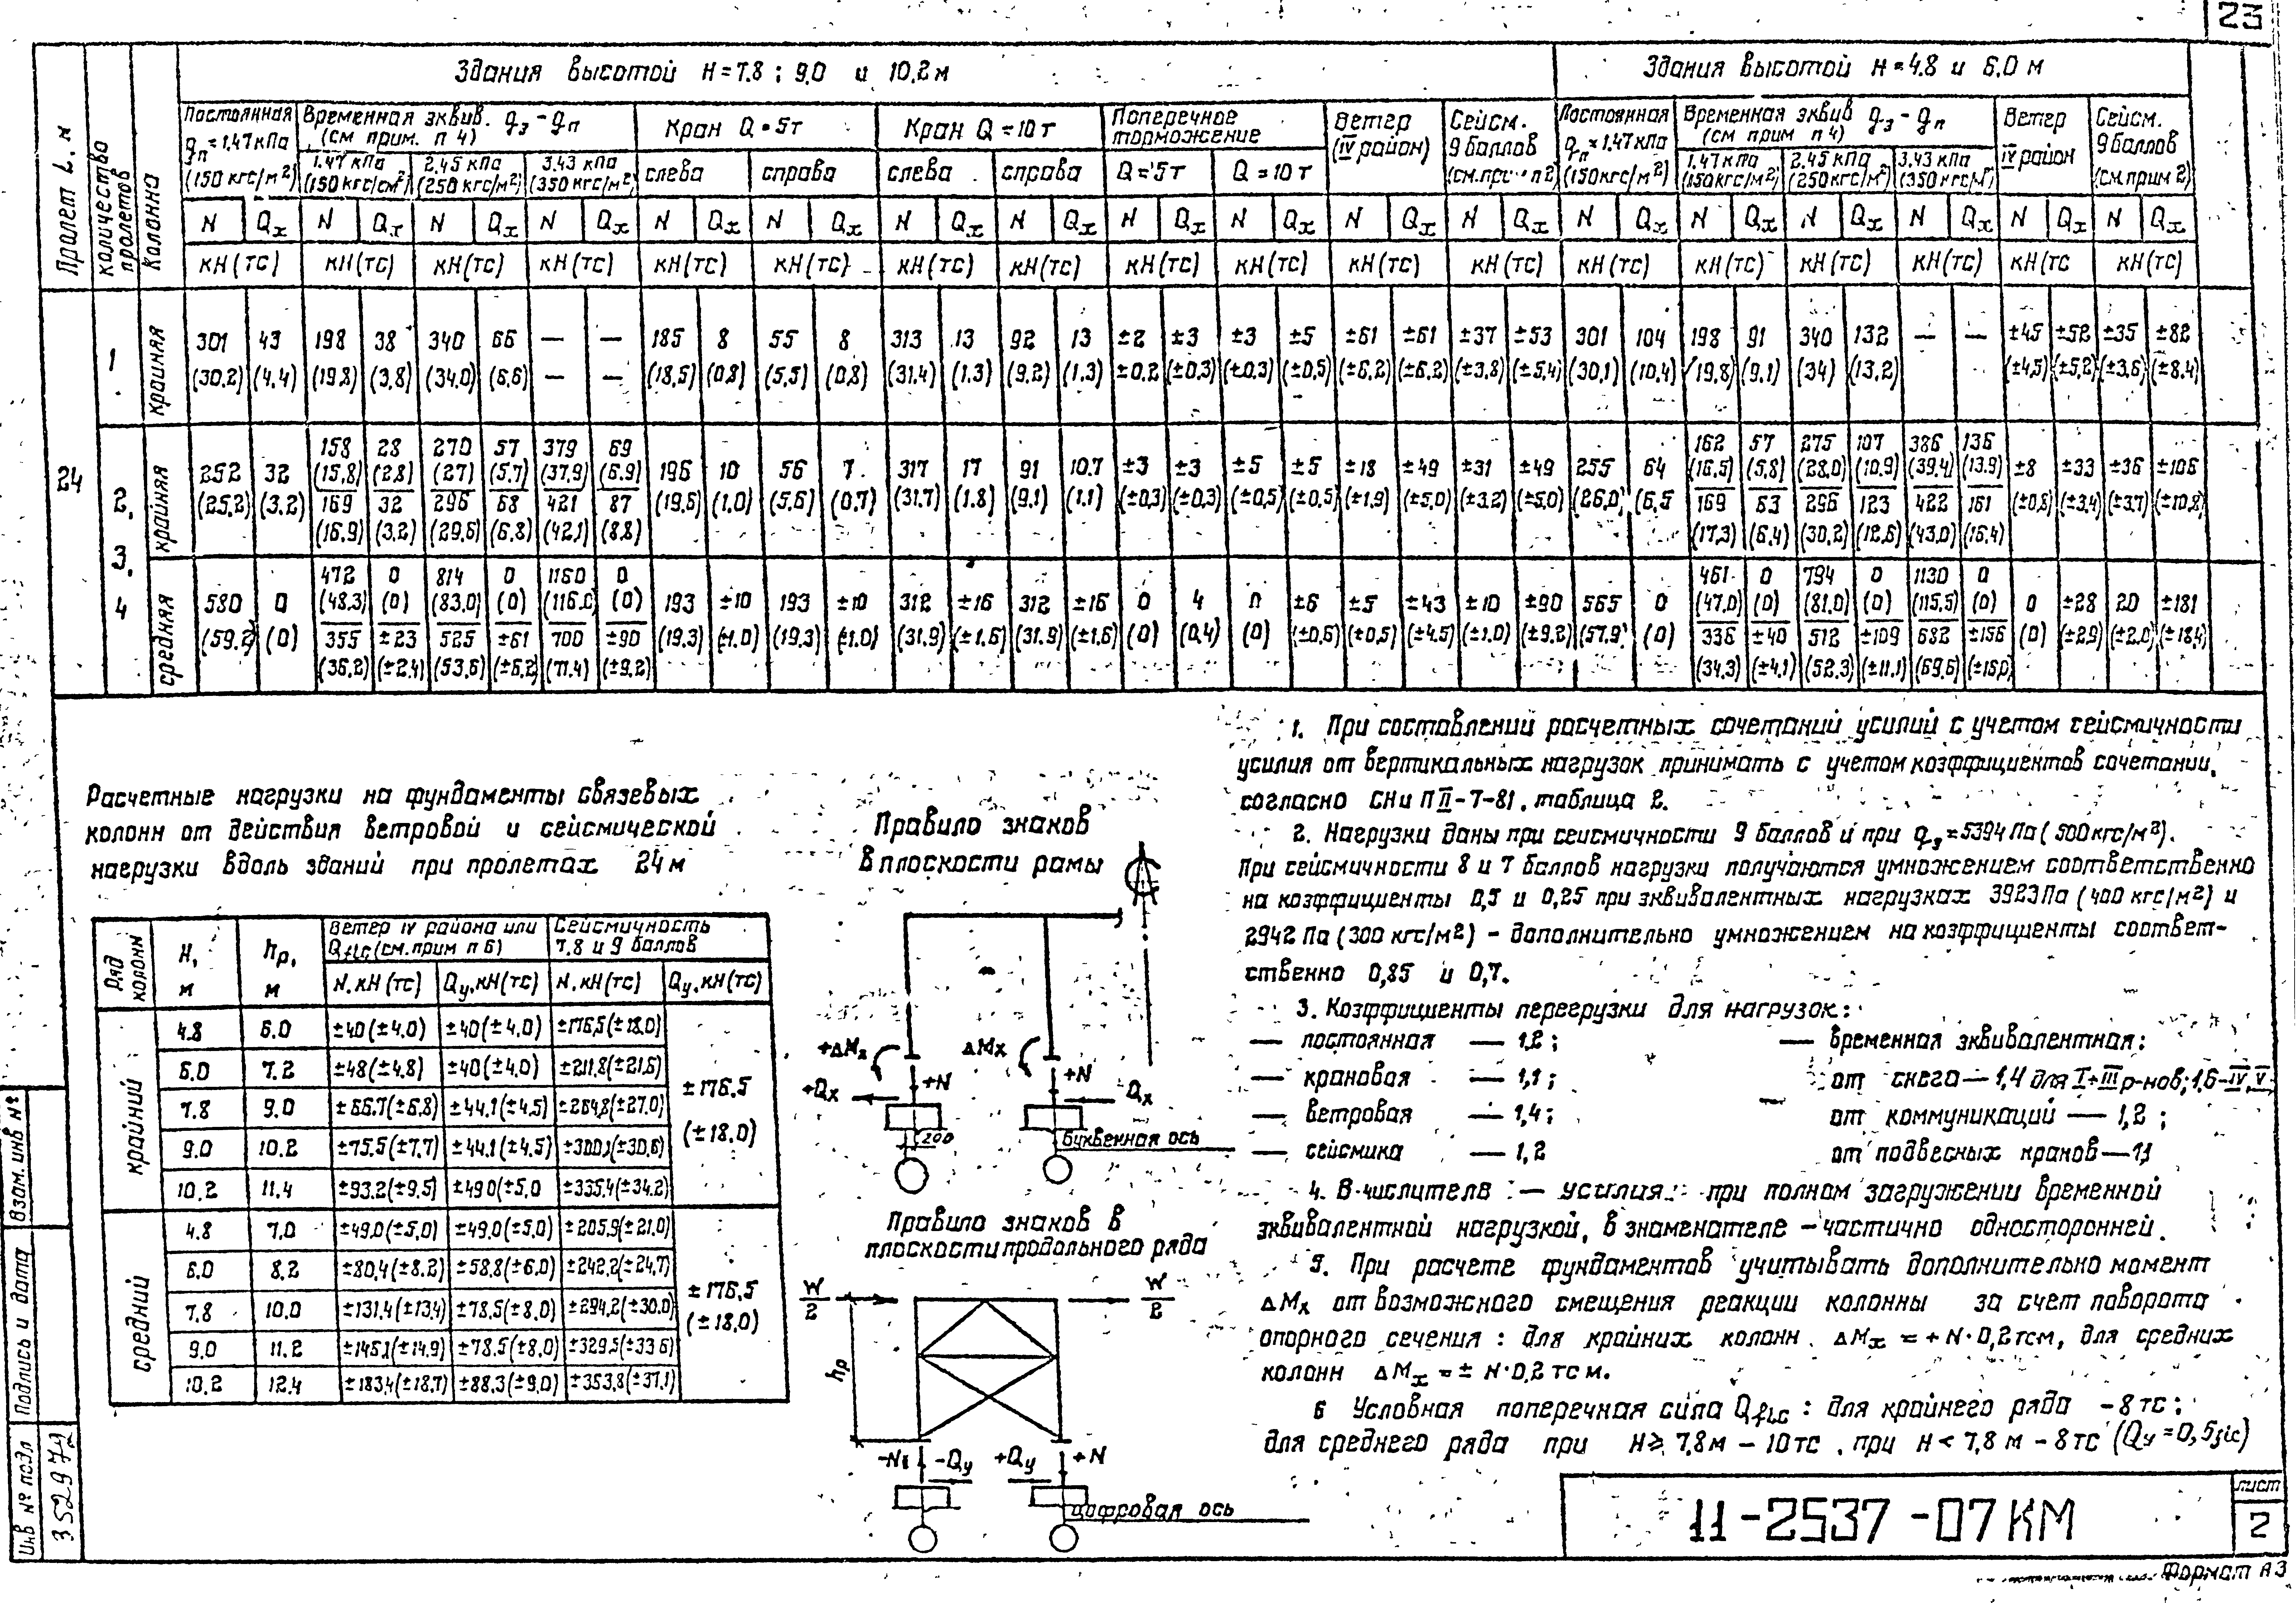 23
Здания высотой H=7.8 ; 9.0 и 10.2 м
Здания высотой H=4.8 и 6.0 м
Пролет L, м
Количество пролетов
Колонна
Постоянная qп=1.47кПа (150 кгс/м²)
Временная эквив. qэ-qп (см. прим. п 4)
1.47 кПа (150 кгс/см²)
2.45 кПа (250 кгс/м²)
3.43 кПа (350 кгс/м²)
Кран Q=5т
слева
справа
Кран Q=10т
слева
справа
Поперечное торможение
Q=5т
Q=10т
Ветер (IV район)
Сейсм. 9 баллов
Постоянная qп=1.47кПа (150кгс/м²)
Временная эквив qэ-qп (см прим п 4)
1.47 кПа (150кгс/м²)
2.45 кПа (250кгс/м²)
3.43 кПа
Ветер IV район
Сейсм. 9 баллов (см.прим 2)
N Qx N Qx N Qx N Qx N Qx N Qx N Qx N Qx N Qx N Qx N Qx N Qx N Qx N Qx N Qx N Qx N Qx N Qx
кН(тс) кН(тс) кН(тс) кН(тс) кН(тс) кН(тс) кН(тс) кН(тс) кН(тс) кН(тс) кН(тс) кН(тс) кН(тс) кН(тс) кН(тс) кН(тс) кН(тс кН(тс)
24
1
крайняя
301 43 198 38 340 66 — — 185 8 55 8 313 13 92 13 ±2 ±3 ±3 ±5 ±61 ±61 ±37 ±53 301 104 198 91 340 132 — — ±45 ±52 ±35 ±82
(30.2) (4.4) (19.8) (3.8) (34.0) (6.6) — — (18.5) (0.8) (5.5) (0.8) (31.4) (1.3) (9.2) (1.3) ±0.2 (±0.3) (±0.3) (±0.5) (±6.2) (±6.2) (±3.8) (±5.4) (30.1) (10.4) (19.8) (9.1) (34) (13.2) (±4.5) (±5.2) (±3.6) (±8.4)
2, 3, 4
крайняя
158 28 270 57 379 69 162 57 275 107 386 136
252 32 (15.8) (2.8) (27) (5.7) (37.9) (6.9) 196 10 56 7 317 17 91 10.7 ±3 ±3 ±5 ±5 ±18 ±49 ±31 ±49 255 64 (16.5) (5.8) (28.0) (10.9) (39.4) (13.9) ±8 ±33 ±36 ±106
(25.2) (3.2) 169 32 296 68 421 87 (19.6) (1.0) (5.6) (0.7) (31.7) (1.8) (9.1) (1.1) (±0.3) (±0.3) (±0.5) (±0.5) (±1.9) (±5.0) (±3.2) (±5.0) (26.0) (6.5 169 63 296 123 422 161 (±0.8) (±3.4) (±3.7) (±10.8)
(16.9) (3.2) (29.6) (6.8) (42.1) (8.8) (17.3) (6.4) (30.2) (12.6) (43.0) (16.4)
средняя
472 0 814 0 1160 0 461 0 794 0 1130 0
580 0 (48.3) (0) (83.0) (0) (116.0 (0) 193 ±10 193 ±10 312 ±16 312 ±16 0 4 0 ±6 ±5 ±43 ±10 ±90 565 0 (47.0) (0) (81.0) (0) (115.5) (0) 0 ±28 20 ±181
(59.2) (0) 355 ±23 525 ±61 700 ±90 (19.3) (±1.0) (19.3) (±1.0) (31.9) (±1.6) (31.9) (±1.6) (0) (0.4) (0) (±0.6) (±0.5) (±4.5) (±1.0) (±9.2) (57.9) (0) 336 ±40 512 ±109 682 ±156 (0) (±2.9) (±2.0) (±18.4)
(36.2) (±2.4) (53.6) (±6.2) (71.4) (±9.2) (34.3) (±4.1) (52.3) (±11.1) (69.6) (±16.0)
Расчетные нагрузки на фундаменты связевых
колонн от действия ветровой и сейсмической
нагрузки вдоль зданий при пролетах 24 м
Ряд колонн
H, м
hp, м
Ветер IV района или Qfic (см. прим п 6)
Сейсмичность 7.8 и 9 баллов
N. кН (тс) Qy. кН(тс) N. кН(тс) Qy. кН(тс)
крайний
4.8 6.0 ±40(±4.0) ±40(±4.0) ±176,5(±18.0)
6.0 7.2 ±48(±4.8) ±40(±4.0) ±211.8(±21,6)
7.8 9.0 ±66.7(±6,8) ±44.1(±4.5) ±264,8(±27.0)
9.0 10.2 ±75.5(±7.7) ±44.1(±4.5) ±300,1(±30.6)
10.2 11.4 ±93.2(±9.5) ±49 0(±5,0 ±335,4(±34.2)
±176.5
(±18.0)
средний
4.8 7,0 ±49.0(±5,0) ±49.0(±5.0) ±205,9(±21.0)
6.0 8.2 ±80,4(±8.2) ±58,8(±6.0) ±242,2(±24,7)
7.8 10.0 ±131.4(±13,4) ±78,5(±8,0) ±294,2(±30.0)
9.0 11.2 ±146.1(±14.9) ±78.5(±8.0) ±329.5(±33 6)
10.2 12.4 ±183.4(±18.7) ±88.3(±9.0) ±353,8(±37.1)
±176,5
(±18.0)
Правило знаков
в плоскости рамы
+ΔMx ΔMx
+N +N
+Qx Qx
200
буквенная ось
Правило знаков в
плоскости продольного ряда
W/2 W/2
hp
-N -Qy +Qy +N
цифровая ось
1. При составлений расчетных сочетаний усилий с учетом сейсмичности
усилия от вертикальных нагрузок принимать с учетом коэффициентов сочетании,
согласно СНиП II-7-81, таблица 2.
2. Нагрузки даны при сейсмичности 9 баллов и при qэ=5394 Па (500кгс/м²).
При сейсмичности 8 и 7 баллов нагрузки получаются умножением соответственно
на коэффициенты 0,5 и 0,25 при эквивалентных нагрузках 3923Па (400 кгс/м²) и
2942 Па (300 кгс/м²) – дополнительно умножением на коэффициенты соответ-
ственно 0,85 и 0,7.
3. Коэффициенты перегрузки для нагрузок:
— постоянная — 1,2 ; — временная эквивалентная:
— крановая — 1,1 ; от снега — 1,4 для I÷III р-нов; 1,6-IV,V
— ветровая — 1,4 ; от коммуникаций — 1,2 ;
— сейсмика — 1,2 от подвесных кранов — 1,1
4. В числителе — усилия при полном загружении временной
эквивалентной нагрузкой, в знаменателе – частично односторонней.
5. При расчете фундаментов учитывать дополнительно момент
ΔMx от возможного смещения реакции колонны за счет поворота
опорного сечения : для крайних колонн ΔMx = + N·0,2тсм, для средних
колонн ΔMx = ± N·0,2 тсм.
6 Условная поперечная сила Qfic : для крайнего ряда – 8 тс ;
для среднего ряда при H ≥ 7,8м – 10 тс , при H < 7,8 м – 8 тс (Qy = 0,5fic)
11-2537-07КМ
лист
2
Формат А3
Взам. инв №
Подпись и дата
Инв № подл
352972